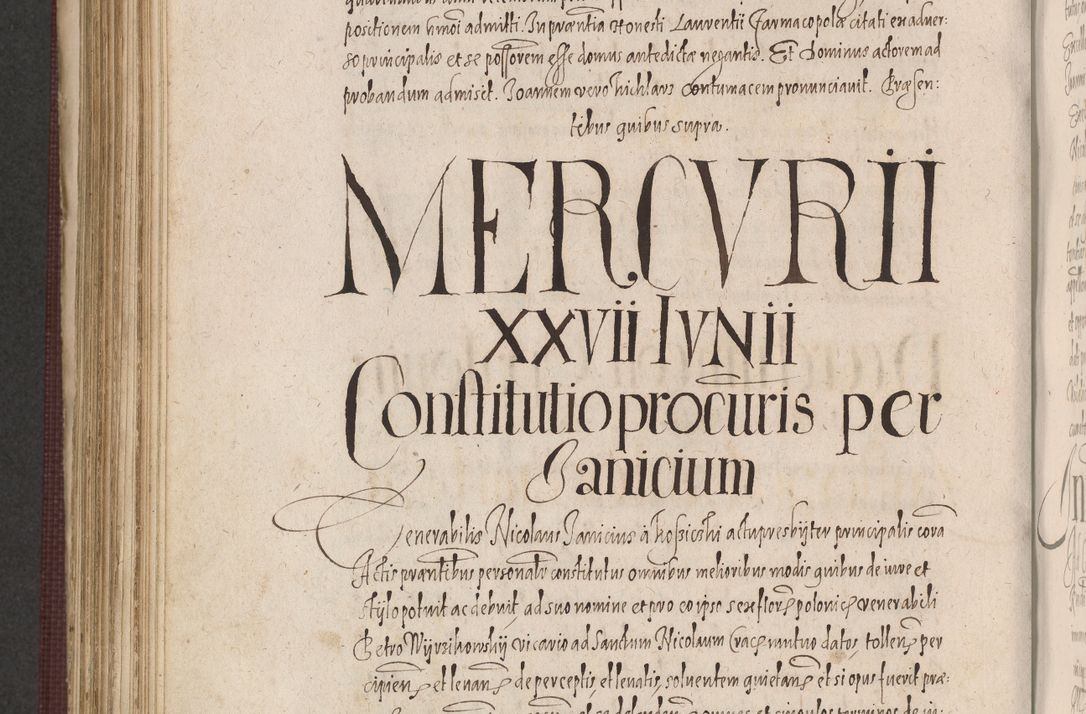 positionem hmoi admitti. In præntia Honesti Laurentii Farmacopolæ citati ex adver:
so principalis et se possorem esse domus antedictæ negantis. Et Dominus actorem ad
probandum admisit. Joannem vero hichlars Contumacem pronunciavit. Præsen:
tibus quibus supra.
MERCVRII
XXVII IVNII
Constitutio procuris per
Janicium
Venerabilis Nicolaus Janicius à actu presbijter principalis corā
Actis præntibus personalr constitutus omnibus melioribus modis quibus de iure et
stylo potuit ac debuit ad suo nomine et pro eo ipso sex florꝫ polonicꝫ venerabili
Petro vicario ad Sanctum Nicolaum Cracꝫ mutuo datos tollenꝫ per
cipienꝫ et levanꝫ de perceptis, et levatis, solventem quietanꝫ et si opus fuerit præ: